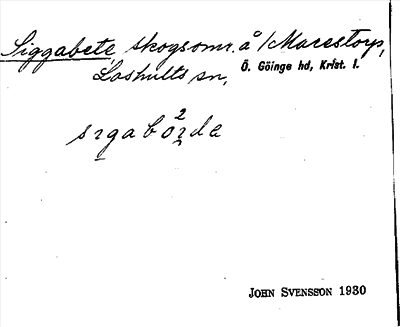 Siggabete, skogsomr. å Marestorp,
Loshults sn, Ö. Göinge hd, Krist. l.
JOHN SVENSSON 1930